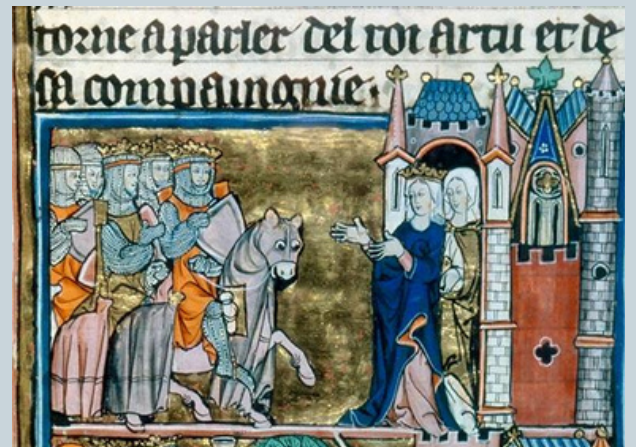 torne a parler del roi artu et de
sa compaingnie.